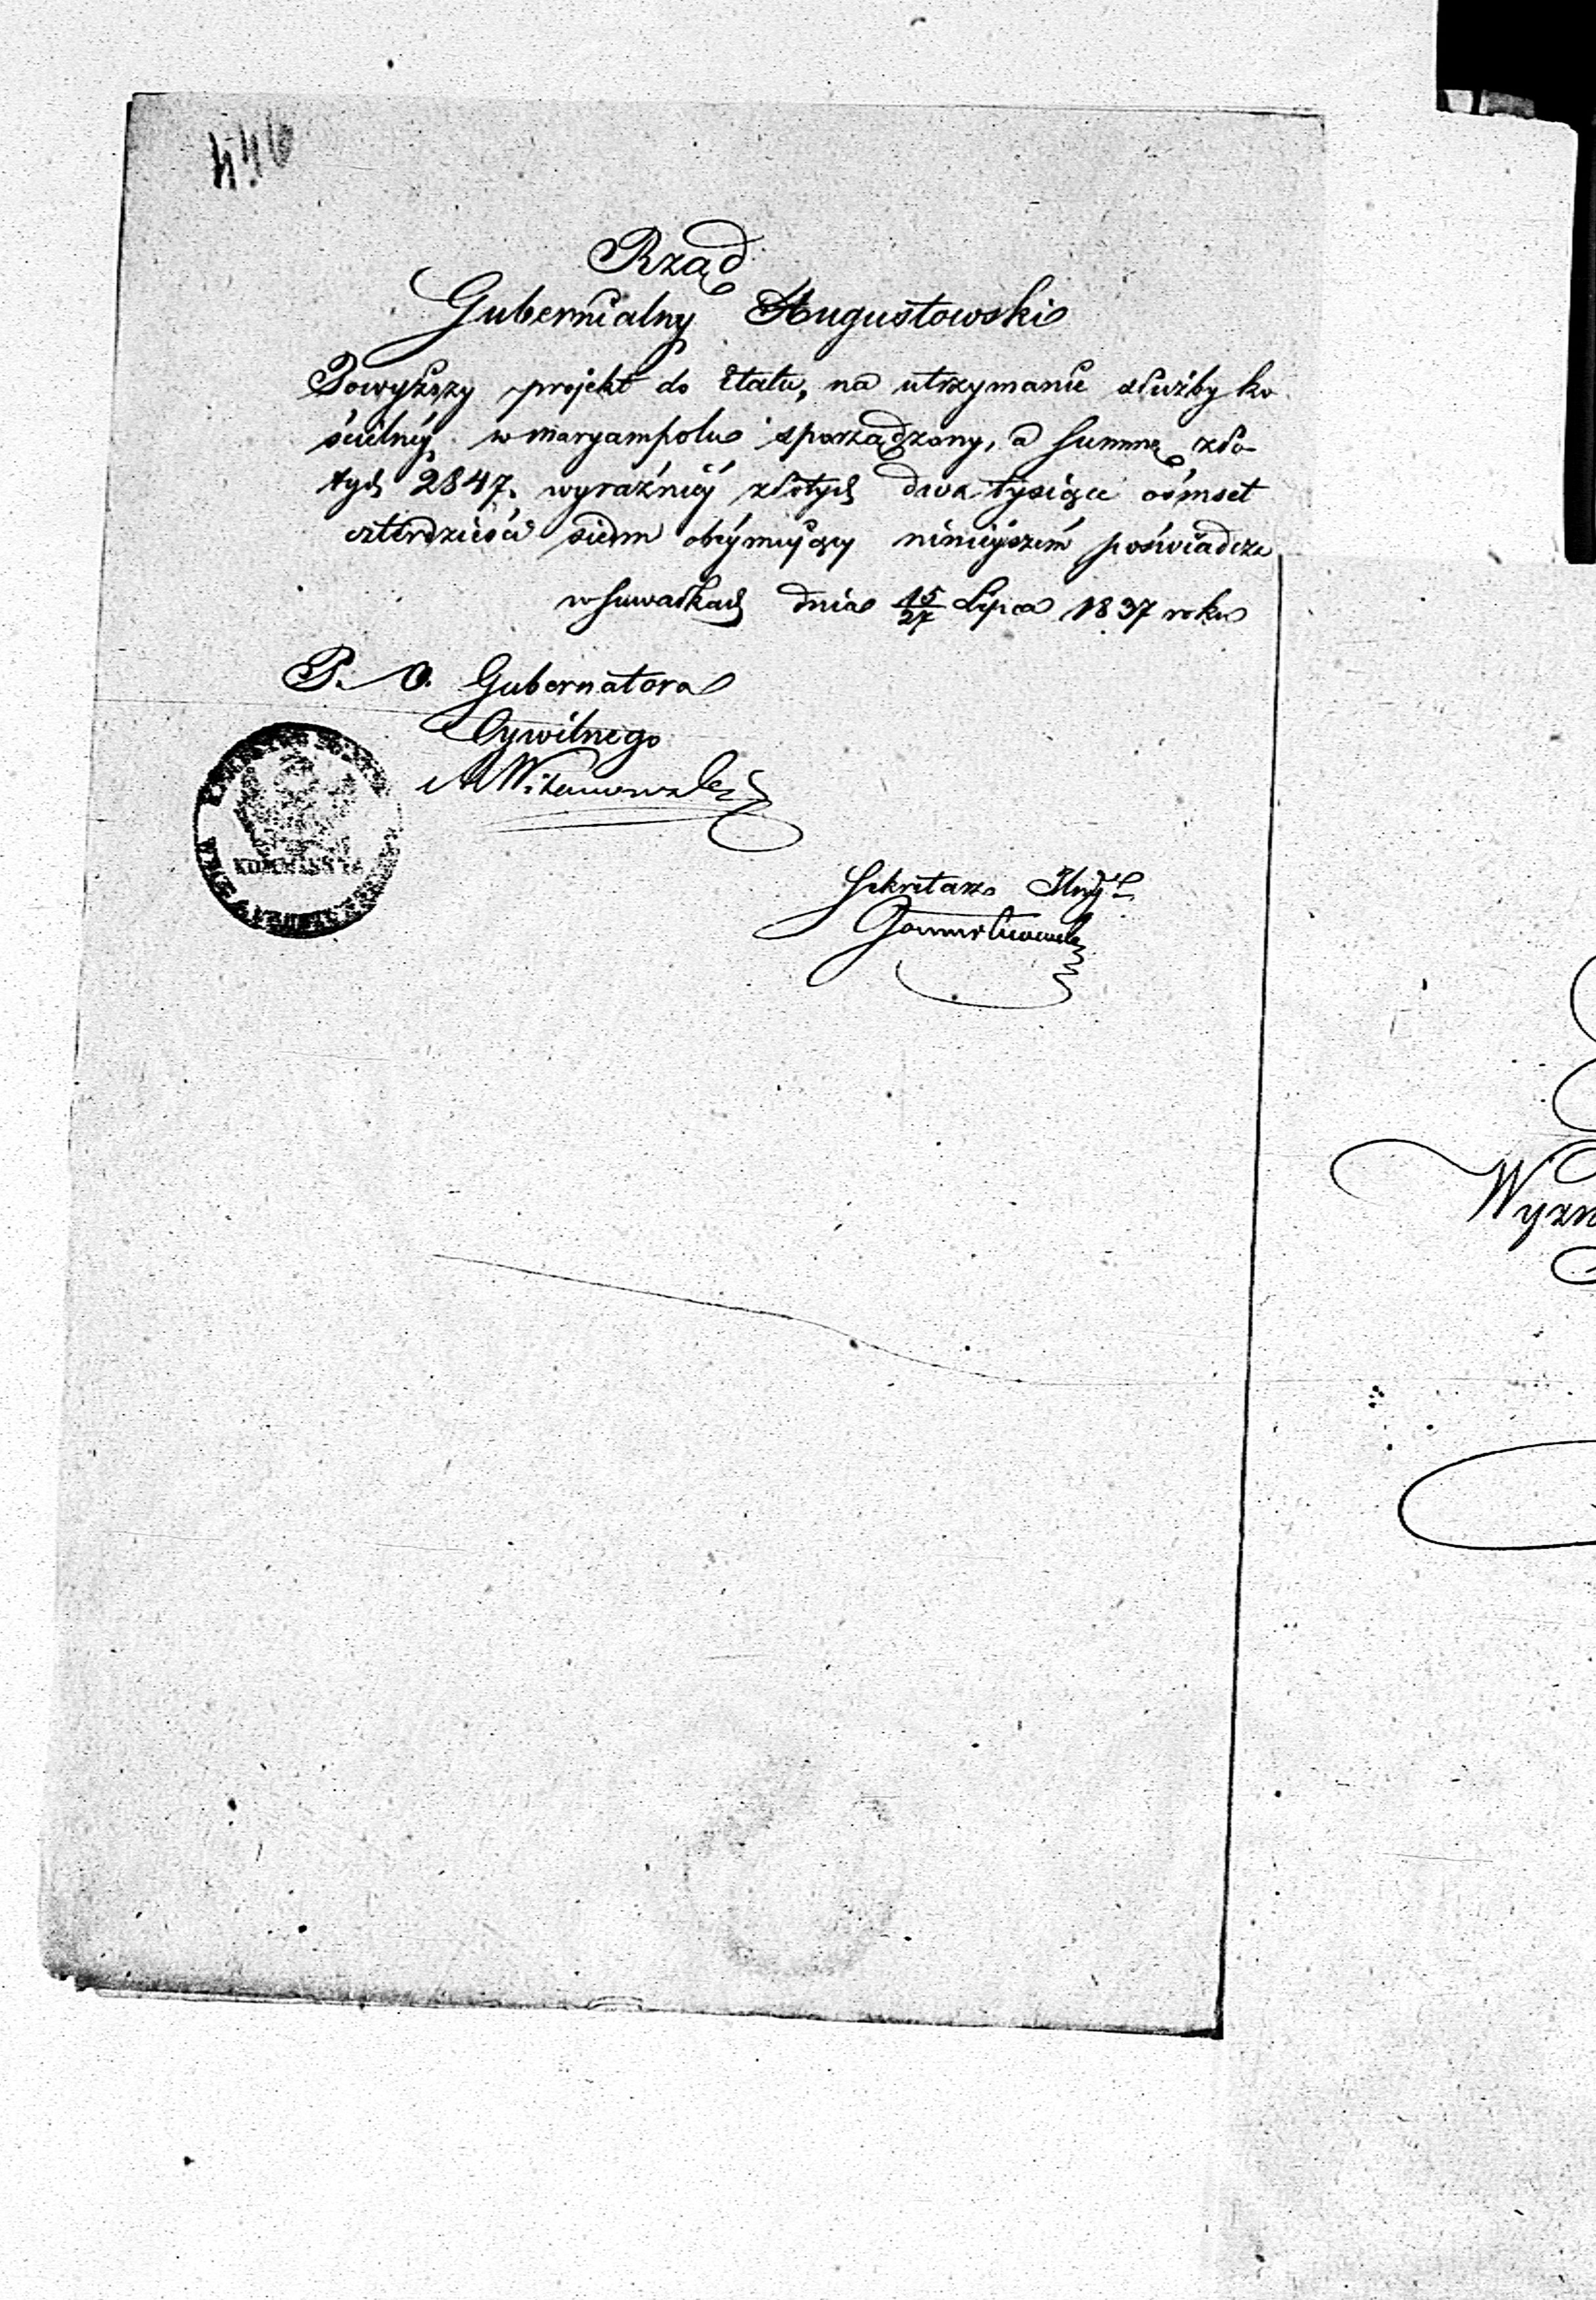 Rząd
Gubernialny Augustowski
Powyższy projekt do Etatu, na utrzymanie służby ko
ścielnéy w Maryampolu sporządzony, a Summę zło-
tych 2847. wyraźniéy złotych dwa tysiące ośmset
czterdzieści siedm obéymuiący ninieyszém poświadcza
w Suwałkach dnia 15/27 Lipca 1837 roku
P. O. Gubernatora
Cywilnego
Sekretarz
KOMMISSYA
Wyzn